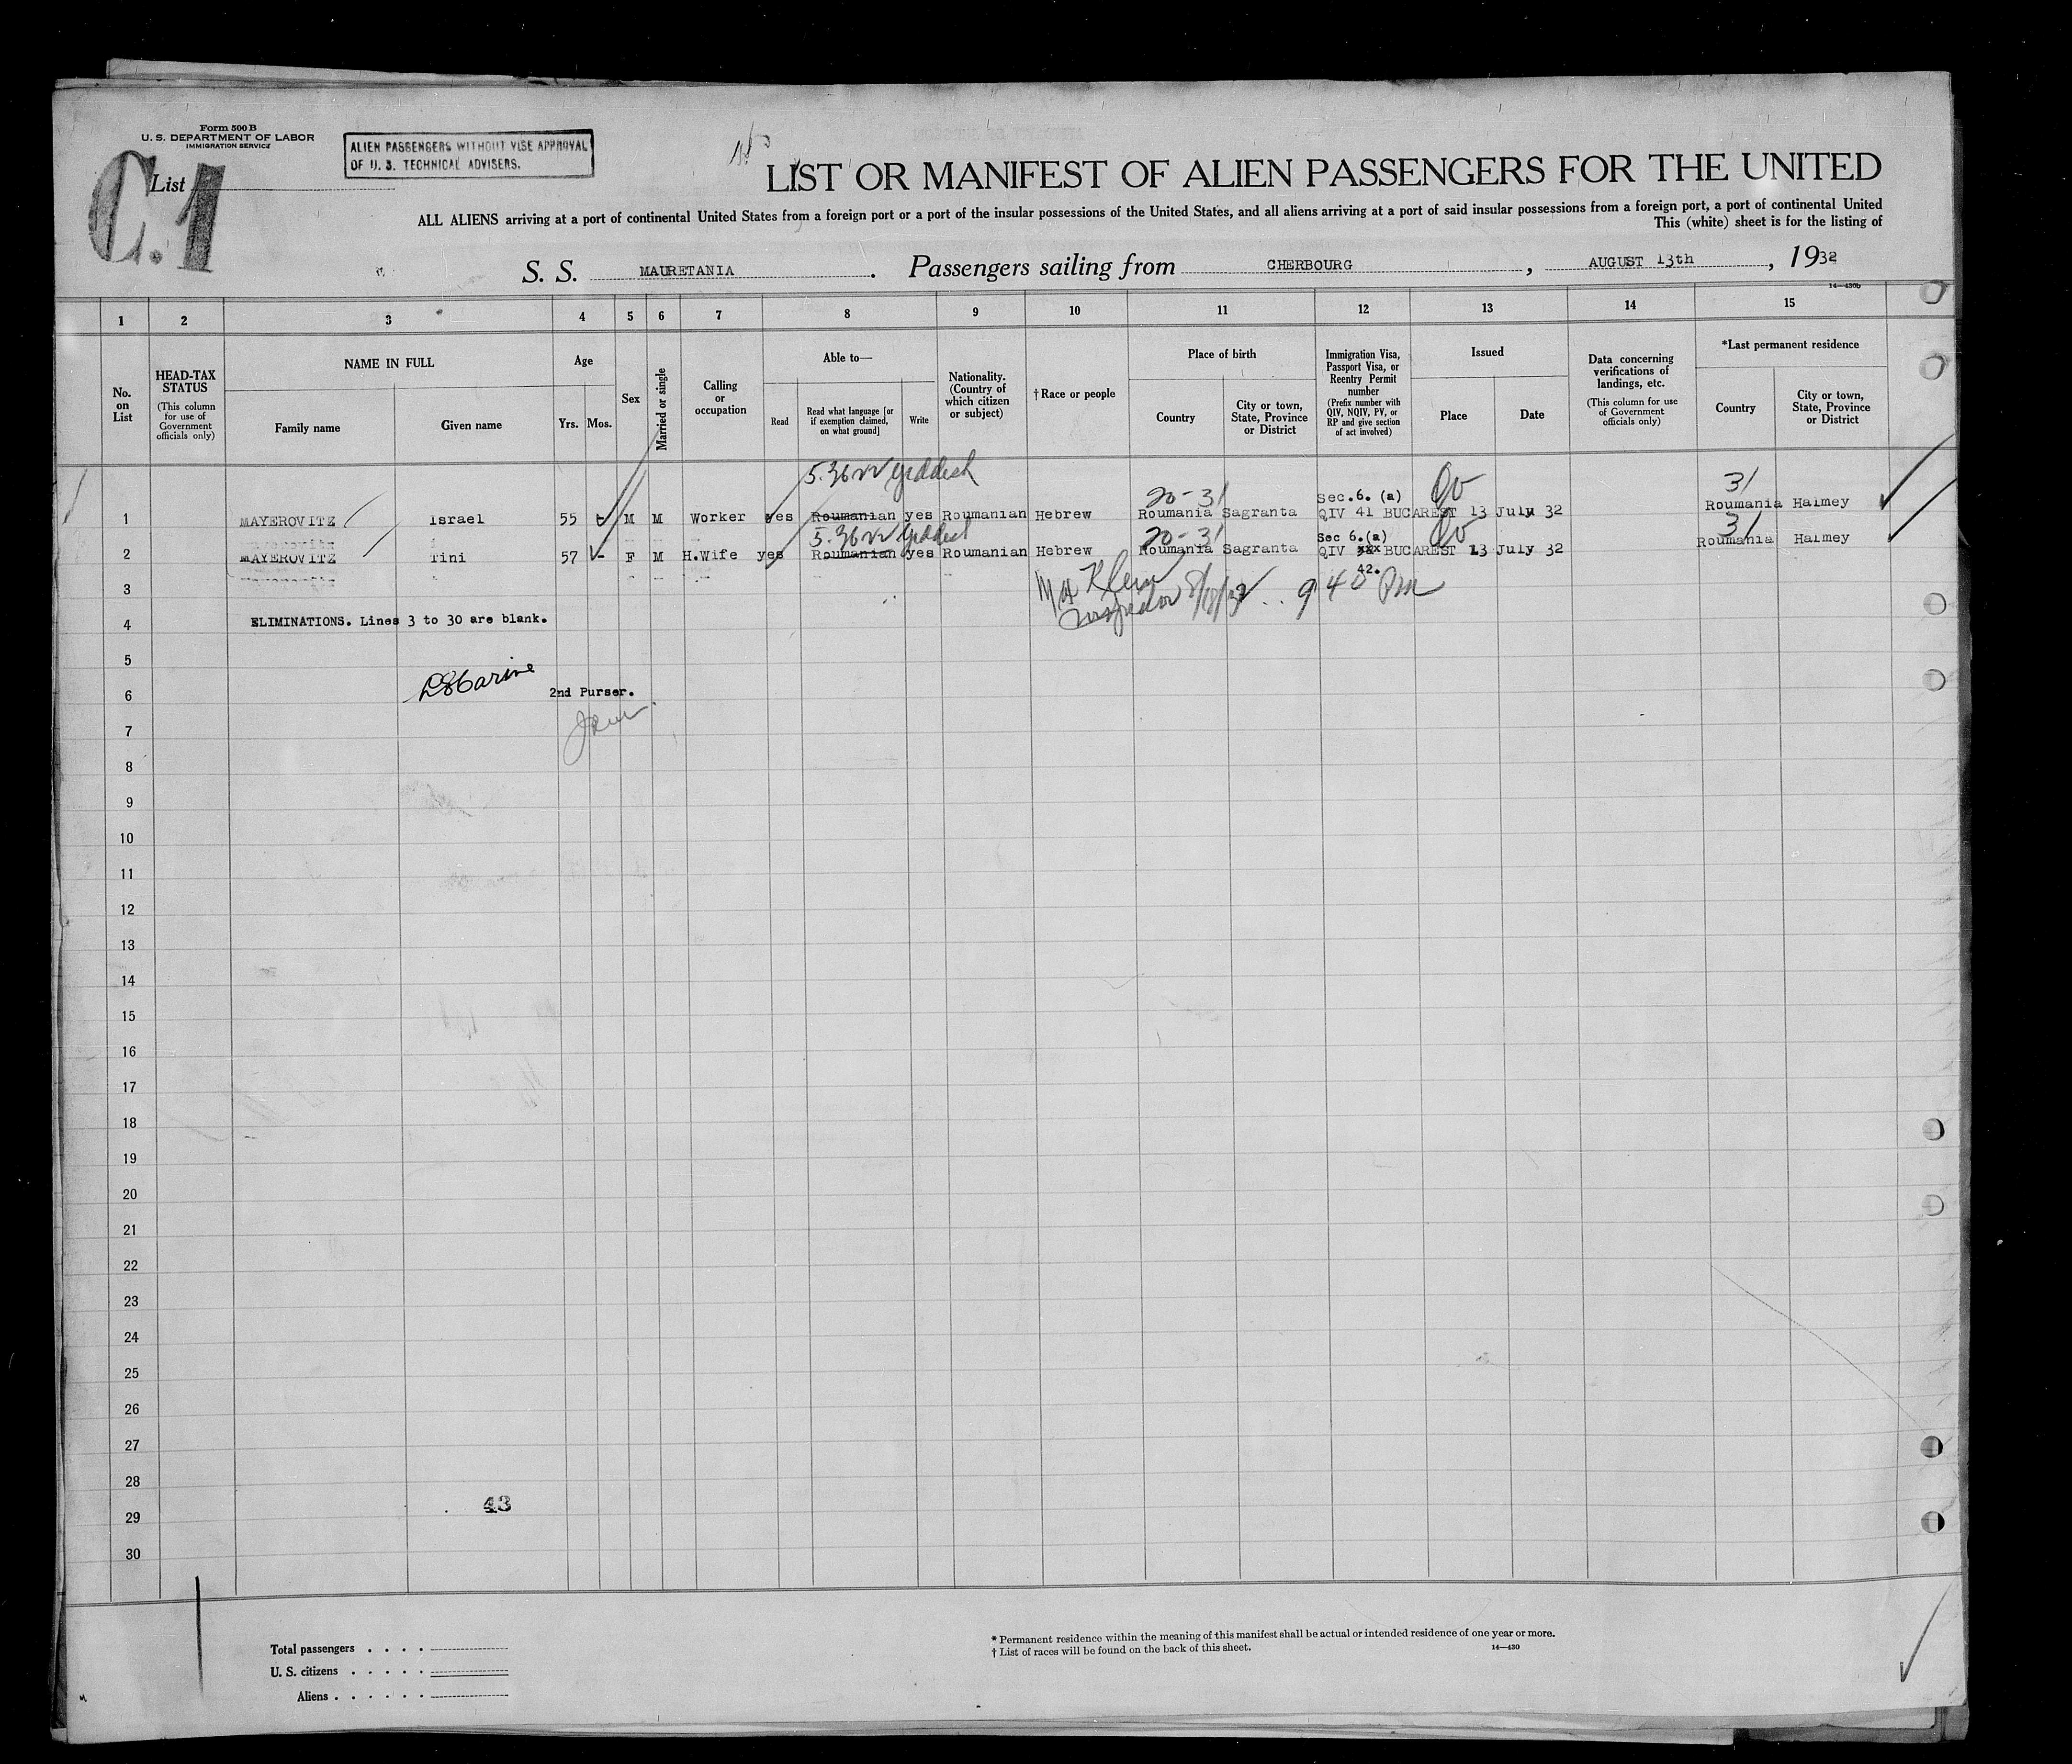 Form 500 B
U. S. DEPARTMENT OF LABOR
IMMIGRATION SERVICE
ALIEN PASSENGERS WITHOUT VISE APPROVAL
OF U. S. TECHNICAL ADVISERS.
List
C.1
LIST OR MANIFEST OF ALIEN PASSENGERS FOR THE UNITED
ALL ALIENS arriving at a port of continental United States from a foreign port or a port of the insular possessions of the United States, and all aliens arriving at a port of said insular possessions from a foreign port, a port of continental United
This (white) sheet is for the listing of
S. S. MAURETANIA. Passengers sailing from CHERBOURG, AUGUST 13th, 1932
14—430b
1 2 3 4 5 6 7 8 9 10 11 12 13 14 15
No. on List
HEAD-TAX STATUS
(This column for use of Government officials only)
NAME IN FULL
Family name
Given name
Age
Yrs. Mos.
Sex
Married or single
Calling or occupation
Able to—
Read
Read what language [or if exemption claimed, on what ground]
Write
Nationality. (Country of which citizen or subject)
†Race or people
Place of birth
Country
City or town, State, Province or District
Immigration Visa, Passport Visa, or Reentry Permit number
(Prefix number with QIV, NQIV, PV, or RP and give section of act involved)
Issued
Place
Date
Data concerning verifications of landings, etc.
(This column for use of Government officials only)
*Last permanent residence
Country
City or town, State, Province or District
Yiddish
20-31 Sec.6.(a) 31
1 MAYEROVITZ Israel 55 - M M Worker yes Roumanian yes Roumanian Hebrew Roumania Sagranta QIV 41 BUCAREST 13 July 32 Roumania Halmey
Yiddish 20-31 Sec 6.(a) 31
2 MAYEROVITZ Tini 57 - F M H.Wife yes Roumanian yes Roumanian Hebrew Roumania Sagranta QIV xxx BUCAREST 13 July 32 Roumania Halmey
42.
3
Klein
Inspector 9 40 Pm
4 ELIMINATIONS. Lines 3 to 30 are blank.
5
6 2nd Purser.
7
8
9
10
11
12
13
14
15
16
17
18
19
20
21
22
23
24
25
26
27
28
43
29
30
Total passengers . . . .
U. S. citizens . . . . .
Aliens . . . . . .
* Permanent residence within the meaning of this manifest shall be actual or intended residence of one year or more.
† List of races will be found on the back of this sheet.
14—430